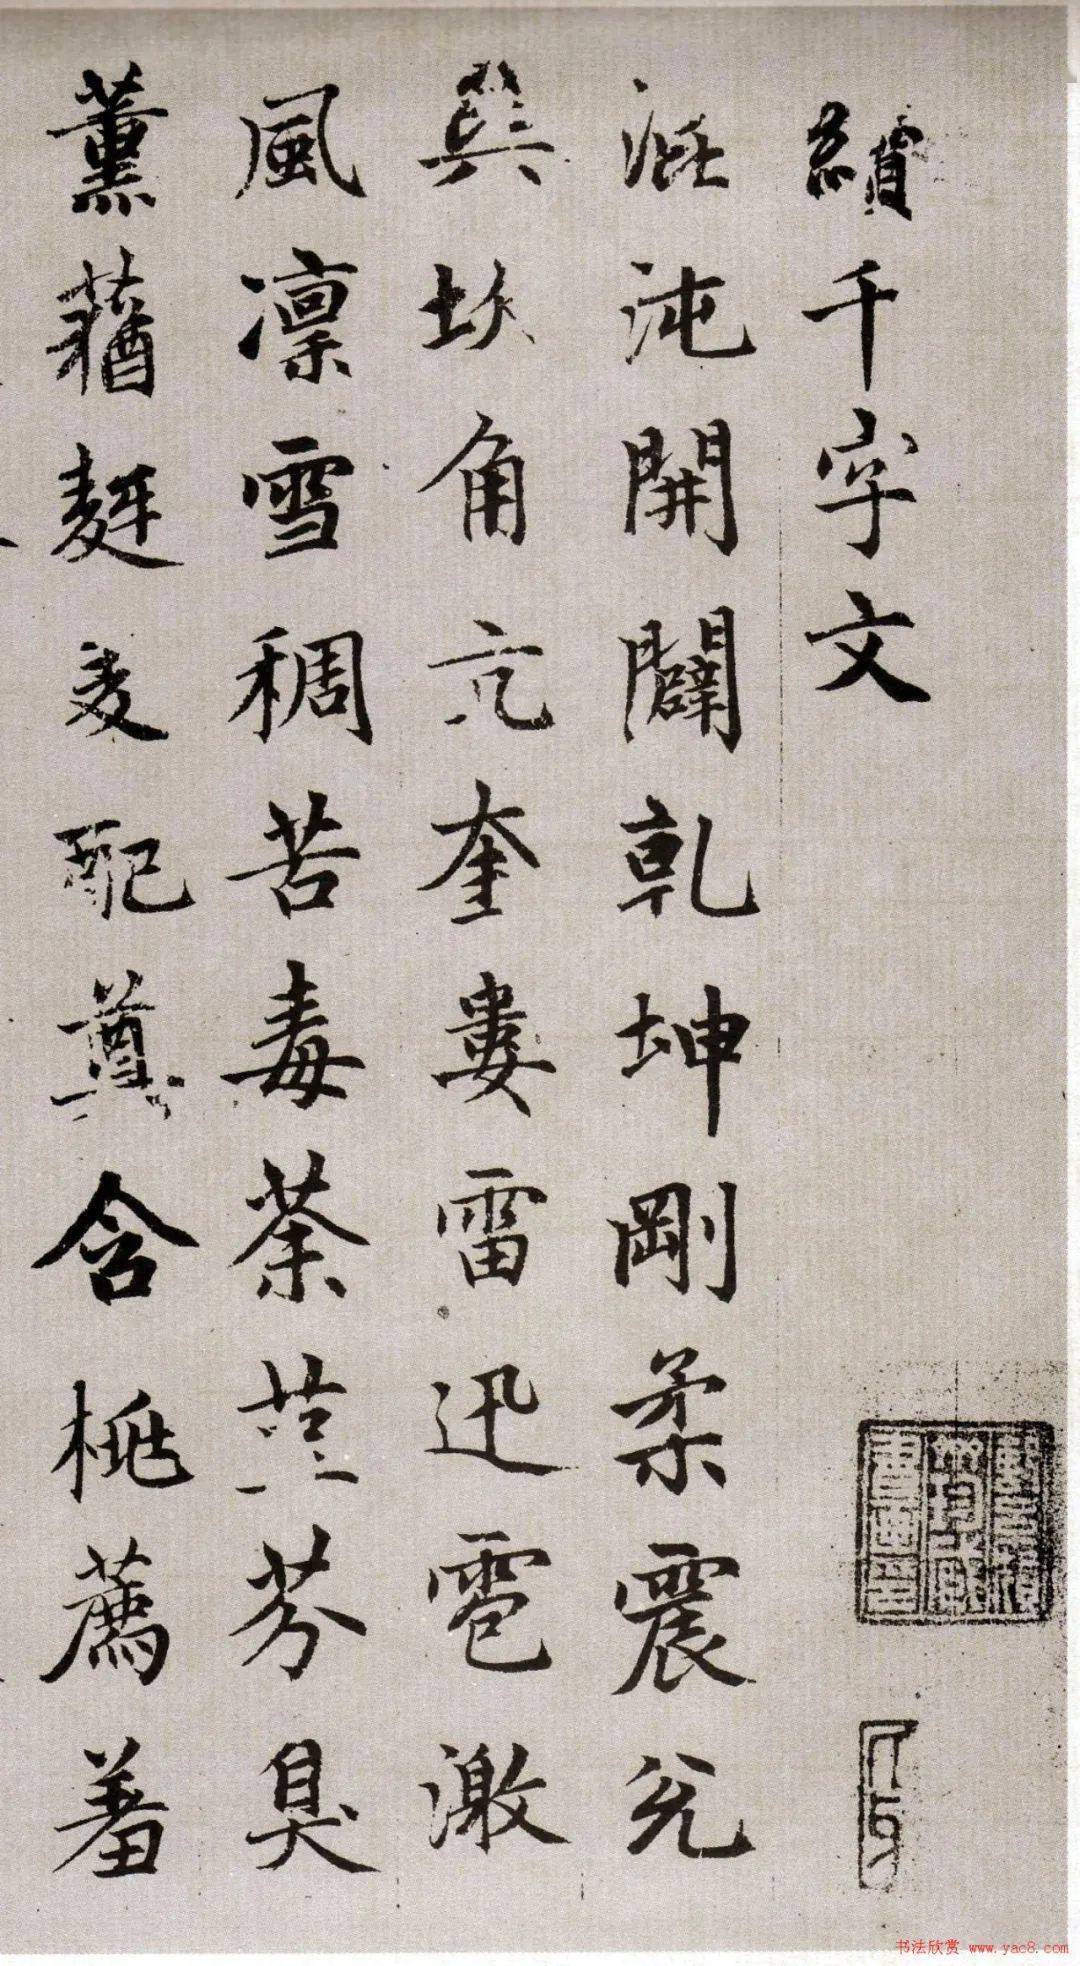 續千字文
混沌開闢乾坤剛柔震兌
巽坎角亢奎婁雷迅雹激
風凛雪稠苦毒荼荁芬臭
薰蕕麰麦配尊含桃薦羞
书法欣赏 www.yac8.com